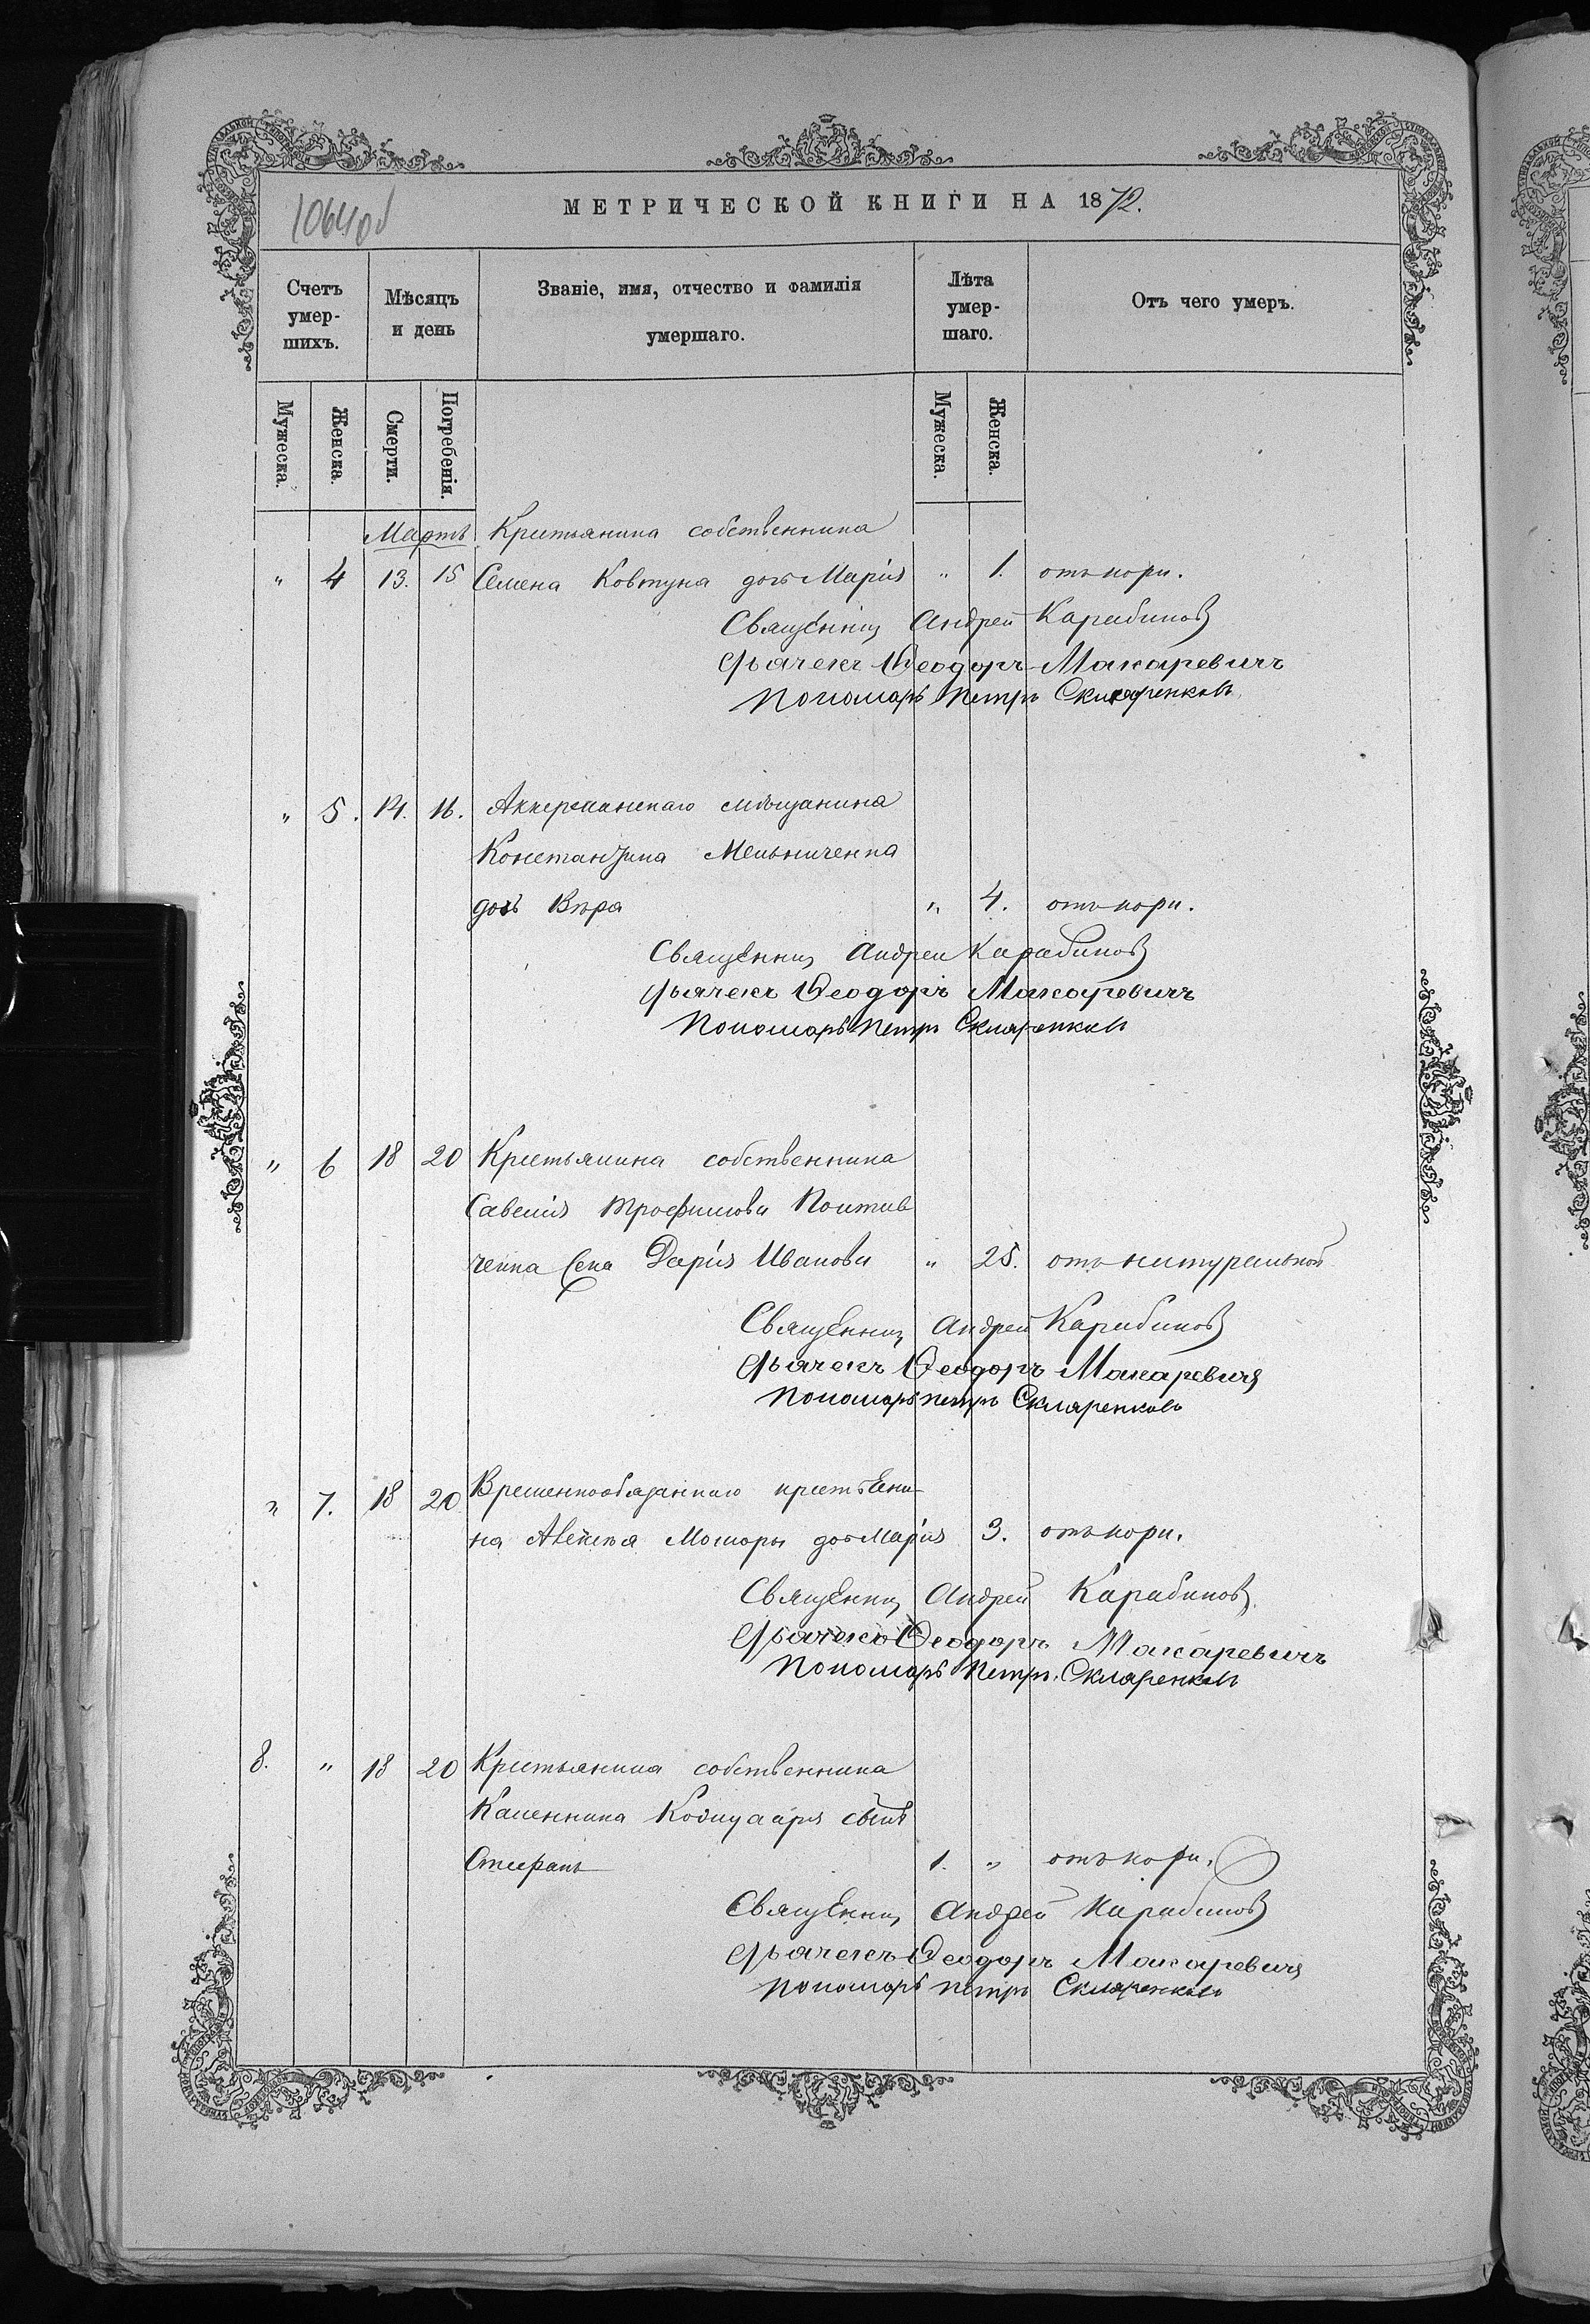 1064 об
МЕТРИЧЕСКОЙ КНИГИ НА 1872.
Счетъ умер-шихъ.
Мѣсяцъ и день
Званіе, имя, отчество и фамилія умершаго.
Лѣта умер-шаго.
Отъ чего умеръ.
Мужеска.
Женска.
Смерти.
Погребенія.
Мужеска.
Женска.
Мартъ Крестьянина собственника
" 4 13. 15 Семена Ковтуна дочь Марія " 1. отъ кори.
Священник Андрей Карабинов
Дьячекъ Ѳеодоръ Макаревичъ
Пономарь Петръ Скляренковъ
" 5. 14. 16. Аккерманскаго мѣщанина
Константина Мельниченка
дочь Вѣра " 4. отъ кори.
Священник Андрей Карабинов
Дьячекъ Ѳеодоръ Макаревичъ
Пономарь Петръ Скляренковъ
" 6 18 20 Крестьянина собственника
Савелія Трофимова
ченка жена Дарія Иванова " 25. отъ натуральной
Священник Андрей Карабинов
Дьячекъ Ѳеодоръ Макаревичъ
Пономарь Петръ Скляренковъ
" 7. 18 20 Временнообязаннаго крестьяни-
на дочь Марія 3. отъ кори.
Священник Андрей Карабинов
Дьячекъ Ѳеодоръ Макаревичъ
Пономарь Петръ Скляренковъ
8. " 18 20 Крестьянина собственника
Калинника сынъ
Стефанъ 1. " отъ кори.
Священник Андрей Карабинов
Дьячекъ Ѳеодоръ Макаревичъ
Пономарь Петръ Скляренковъ